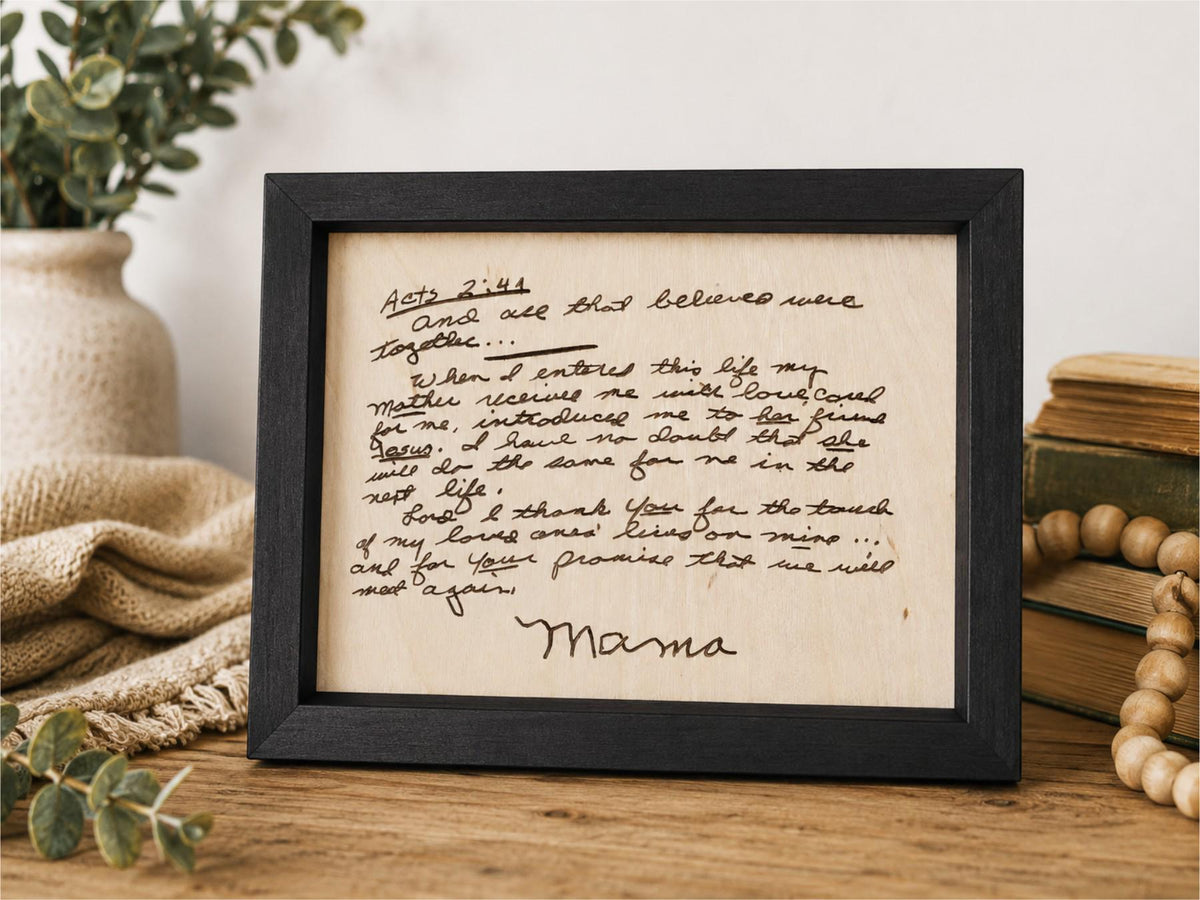 Acts 2:44
and all that believed were
together...
When I entered this life my
Mother received me with love, cared
for me, introduced me to her friend
Jesus. I have no doubt that she
will do the same for me in the
next life.
Lord I thank You for the touch
of my loved ones' lives on mine...
and for Your promise that we will
meet again.
Mama